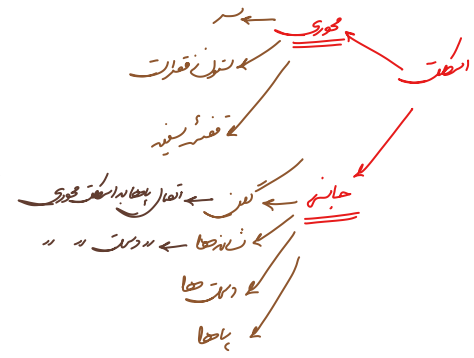 اسکلت
محوری
سر
ستون فقرات
قفسه سینه
جانبی
لگن ← اتصال پاها به اسکلت محوری
شانه‌ها ← 〃 دست 〃 〃
دست ها
پاها